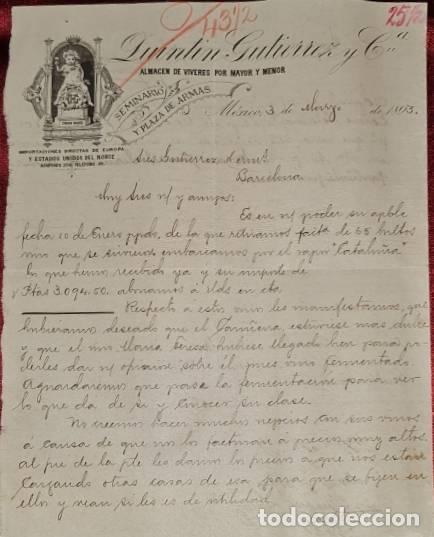 4312
25/2
Quintin Gutierrez y Cª
ALMACEN DE VIVERES POR MAYOR Y MENOR
SEMINARIO
Y PLAZA DE ARMAS
IMPORTACIONES DIRECTAS DE EUROPA
Y ESTADOS UNIDOS DEL NORTE
México, 3 de Marzo de 1893.
Sres Gutierrez
Barcelona
Muy Sres n/ y amigos:
Es en n/ poder su apble
fecha 10 de Enero ppdo, de la que retiramos facta de 55 bultos
vino que se sirvieron embarcarnos por el vapor "Cataluña"
lo que hemos recibido ya y su importe de
Ptas 3.094.50. abonamos á Uds en cta
Respecto á estos vinos les manifestamos, que
hubieramos deseado que el estuviese mas dulce
y que el vino Maria Teresa hubiese llegado bien para po-
derles dar n/ opinion sobre él pues vino fermentado.
Aguardaremos que pase la fermentacion para ver
lo que da de si y conocer su clase.
No creemos hacer muchos negocios con sus vinos
á causa de que nos los facturan á precios muy altos.
al pie de la pte les damos los precios á que nos estan
cargando otras casas de esa para que se fijen en
ellos y vean si les es de utilidad
todocoleccion.net